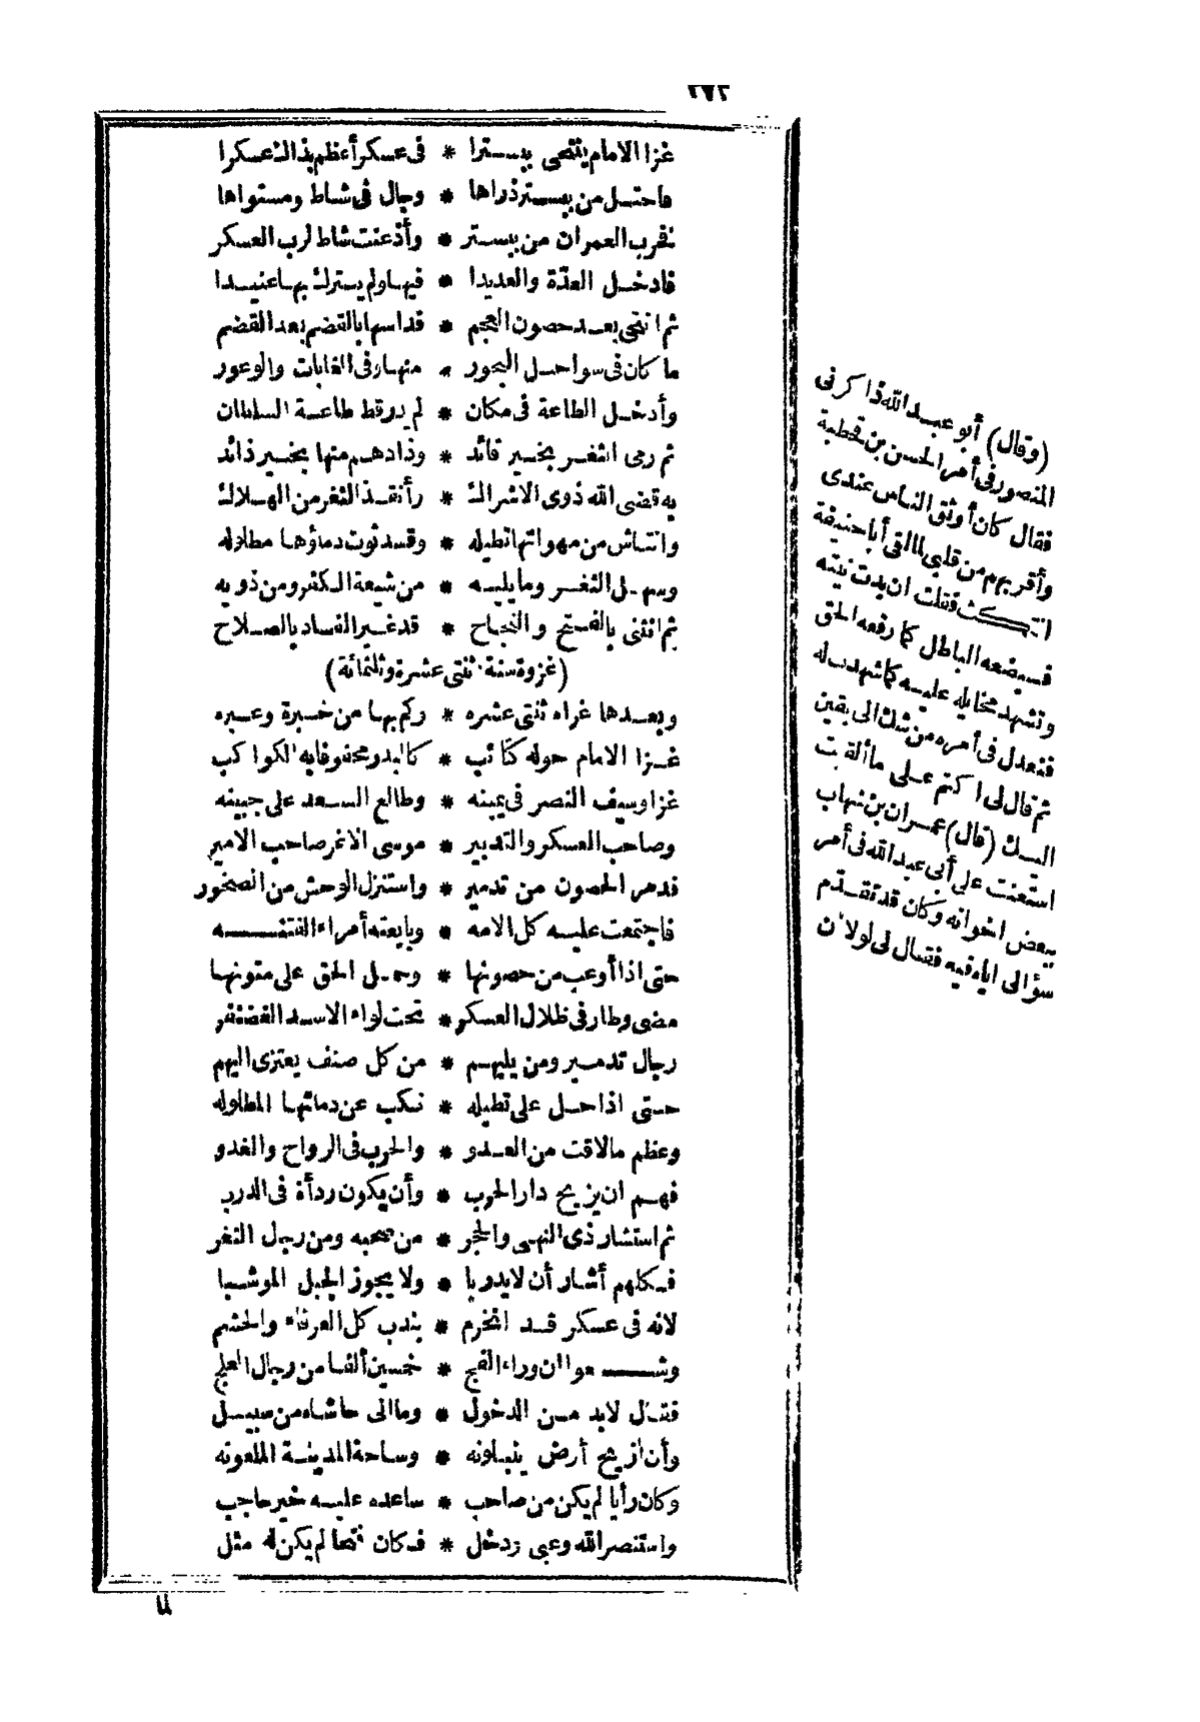 ٢٧٢
غزا الامام ينتحى ببسترا * فى عسكر أعظم بذاك عسكرا
فاحتل من ببستر ذراها * وجال فى شاط ومستواها
فخرب العمران من ببستر * وأذعنت شاط لرب العسكر
فادخل العدّة والعديدا * فيها ولم يترك بها عنيدا
ثم انتحى بعد حصون العجم * فداسها بالقضم بعد القضم
ما كان فى سواحل البحور * منها وفى الغابات والوعور
وأدخل الطاعة فى مكان * لم يدر قط طاعة السلطان
ثم رمى الثغر بخير قائد * وذادهم منها بخير ذائد
به قضى الله ذوى الاشراك * وأنقذ الثغر من الهلاك
وانتاش من مهواتها تطيله * وقد ثوت دماؤها مطلوله
وسهل الثغر وما يليه * من شيعة الكفر ومن ذويه
ثم انثنى بالفتح والنجاح * قد غير الفساد بالصلاح
(غزوة سنة ثنتى عشرة وثلثمائة)
وبعدها غزاه ثنتى عشره * وكم بها من خبرة وعبره
غزا الامام حوله كتائب * كالبدر محفوفا به الكواكب
غزا وسيف النصر فى يمينه * وطالع السعد على جبينه
وصاحب العسكر والتدبير * موسى الاغر صاحب الامير
فدمر الحصون من تدمير * واستنزل الوحش من الصخور
فاجتمعت عليه كل الامه * وبايعته أمراء الفتنه
حتى اذا أوعب من حصونها * وحمل الحق على متونها
مضى وطار فى ظلال العسكر * تحت لواء الاسد الغضنفر
رجال تدمير ومن يليهم * من كل صنف يعتزى اليهم
حتى اذا حل على تطيله * نكب عن دمائها المطلوله
وعظم ما لاقت من العدو * والحرب فى الرواح والغدو
فهم ان يزيح دار الحرب * وأن يكون ردأة فى الدرب
ثم استشار ذى النهى والحجر * من صحبه ومن رجال الثغر
فكلهم أشار أن لا يدربا * ولا يجوز الجبل الموشبا
لانه فى عسكر قد انخرم * بندب كل العرفاء والحشم
وشنعوا ان وراء الفج * خمسين ألفا من رجال العلج
فقال لابد من الدخول * وما الى حاشاه من سبيل
وأن ازيح أرض ينبلونه * وساحة المدينة الملعونه
وكان رأيا لم يكن من صاحب * ساعده عليه خير حاجب
واستنصر الله وعبى ودخل * فكان فتحا لم يكن له مثل
(وقال) أبو عبد الله ذاكرنى
المنصور فى أمر الحسن بن قحطبة
فقال كان أوثق الناس عندى
وأقربهم من قلبى لما لقى أبا حنيفة
انتكث فقلت ان بدت نيته
فسيضعه الباطل كما رفعه الحق
وتشهد مخايله عليه كما شهدت له
فتعدل فى أمره من شك الى يقين
ثم قال لى اكتم على ما ألقيت
اليك (قال) عمران بن شهاب
استعنت على أبى عبد الله فى أمر
ببعض اخوانه وكان قد تقدّم
سؤالى اياه فيه فقال لى لولا ان